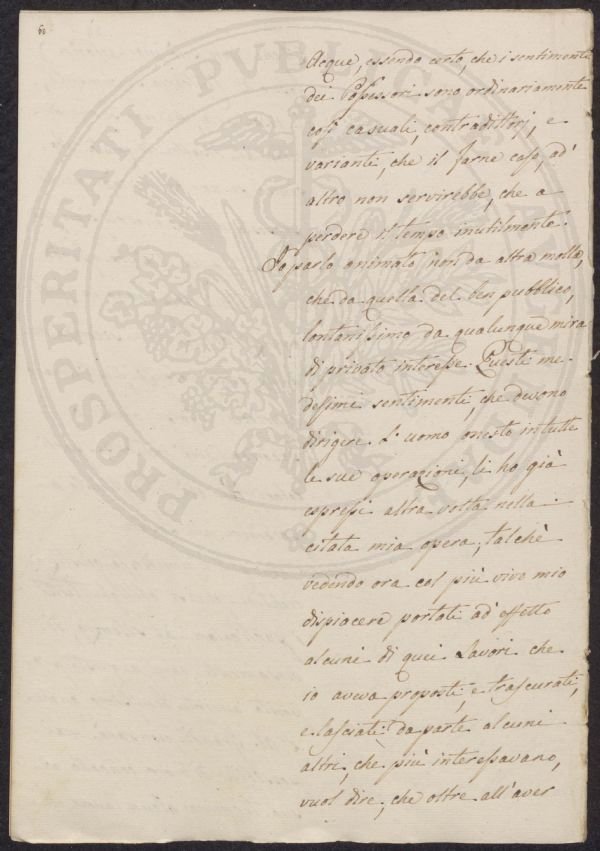 Acque, essendo certo, che i sentimenti
dei Possessori sono ordinariamente
così casuali, contradittorj, e
varianti, che il farne caso, ad'
altro non servirebbe, che a
perdere il tempo inutilmente.
Io parlo animato non da altra molla,
che da quella del ben pubblico,
lontanissimo da qualunque mira
di privato interesse. Questi me-
desimi sentimenti, che devono
dirigere l'uomo onesto in tutte
le sue operazioni, li ho già
espressi altra volta nella
citata mia opera; talchè
vedendo ora col più vivo mio
dispiacere portati ad' effetto
alcuni di quei Lavori che
io aveva proposti, e trascurati,
e lasciati da parte alcuni
altri, che più interessavano,
vuol dire, che oltre all'aver
PROSPERITATI PUBLICAE